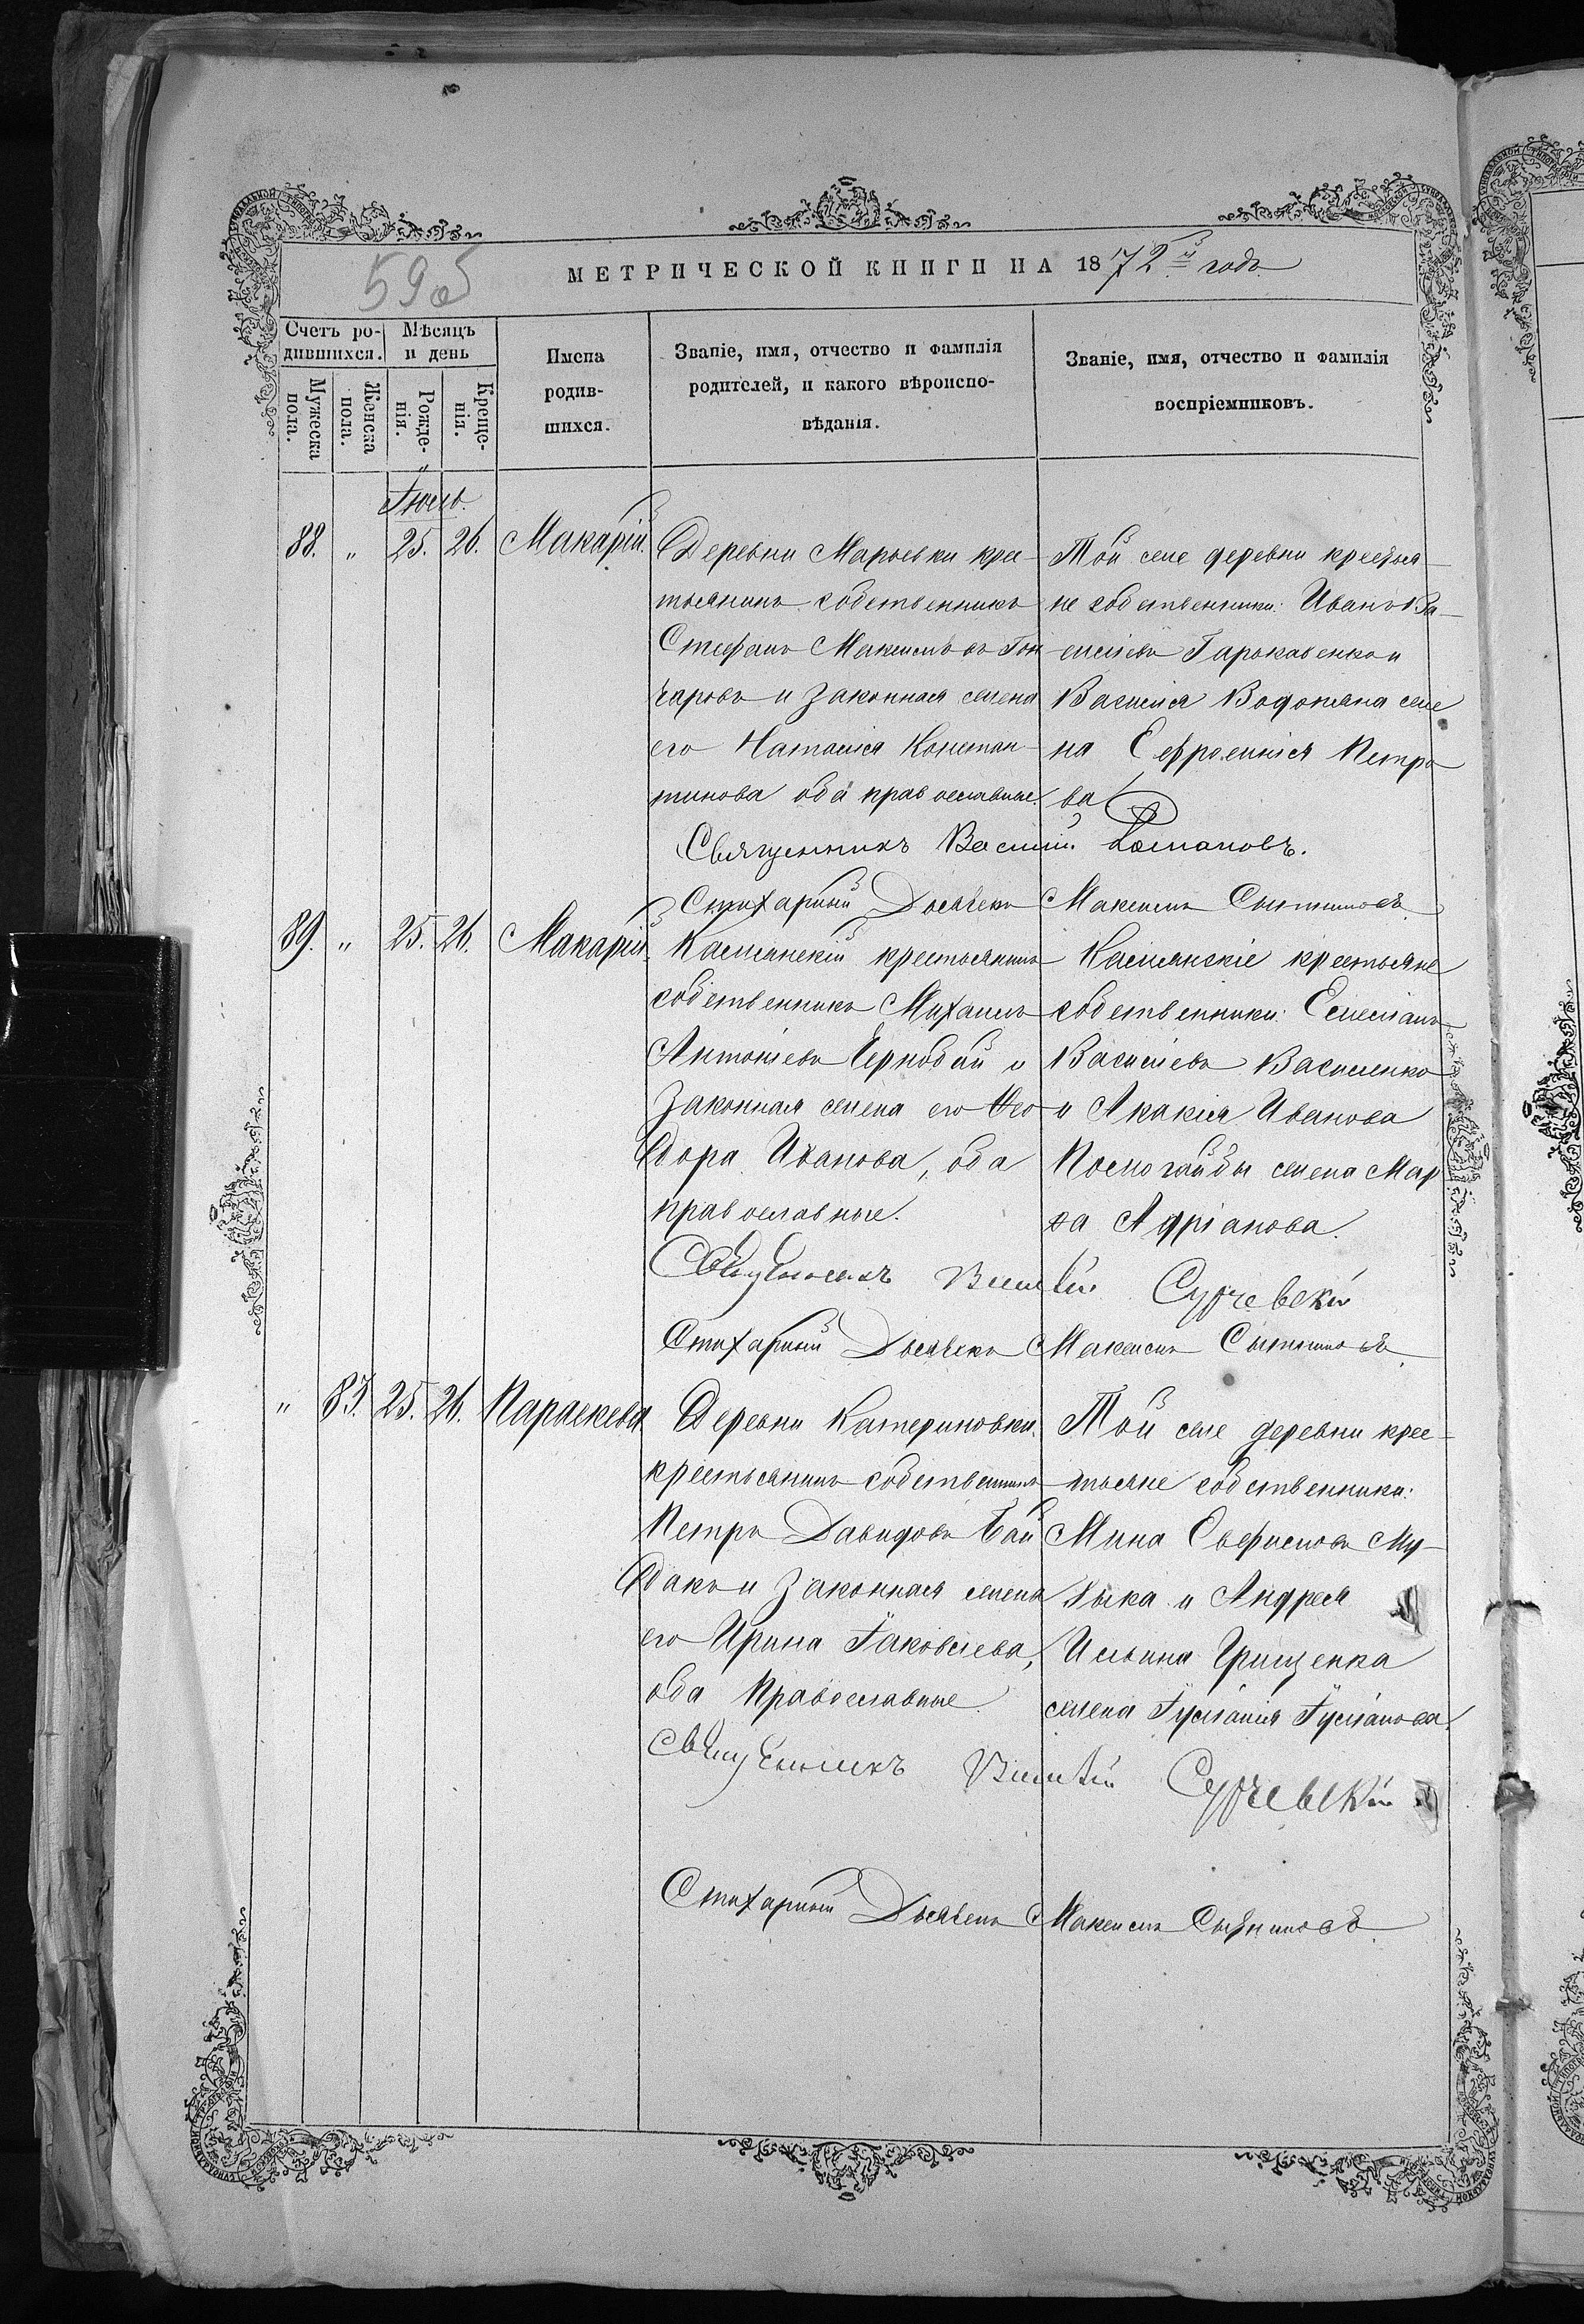 МЕТРИЧЕСКОЙ КНИГИ НА 1872й годъ
Счетъ ро-
дившихся.
Мѣсяцъ
и день
Мужеска
пола.
Женска
пола.
Рожде-
нія.
Креще-
нія.
Имена
родив-
шихся.
Званіе, имя, отчество и фамилія
родителей, и какого вѣроиспо-
вѣданія.
Званіе, имя, отчество и фамилія
воспріемниковъ.
Іюль.
88. " 25. 26. Макарій.
Деревни Марьевки крес-
тьянинъ собственникъ
Стефанъ Максимовъ Гон
чаровъ и законная жена
его Наталія Констан-
тинова оба православные.
Той же деревни крестья-
не собственники: Иванъ Ва-
силіевъ Гаркавенко и
Василія Водопяна же
на Евфросинія Петро
ва
Священникъ Василій Романовъ.
Стихарный Дьячекъ Максимъ Сытниковъ.
89. " 25. 26. Макарій.
Касьянскій крестьянинъ
собственникъ Михаилъ
Антоніевъ Чернобай и
законная жена его Ѳео
дора Иванова, оба
православные.
Касьянскіе крестьяне
собственники: Емеліанъ
Василіевъ Василенко
и Акакія Иванова
Помогайбы жена Мар
ѳа Адріанова.
Священникъ Василій
Стихарный Дьячекъ Максимъ Сытниковъ.
" 83. 25. 26. Параскева
Деревни Катериновки
крестьянинъ собственникъ
Петръ Давидовъ Бай
дакъ и законная жена
его Ирина Іаковлева,
оба Православные
Той же деревни крес-
тьяне собственники:
Мина Евфимовъ Му-
зыка и Андрея
Ильина Грищенка
жена Іуліанія Іуліанова.
Священникъ Василій
Стихарный Дьячекъ Максимъ Сытниковъ.